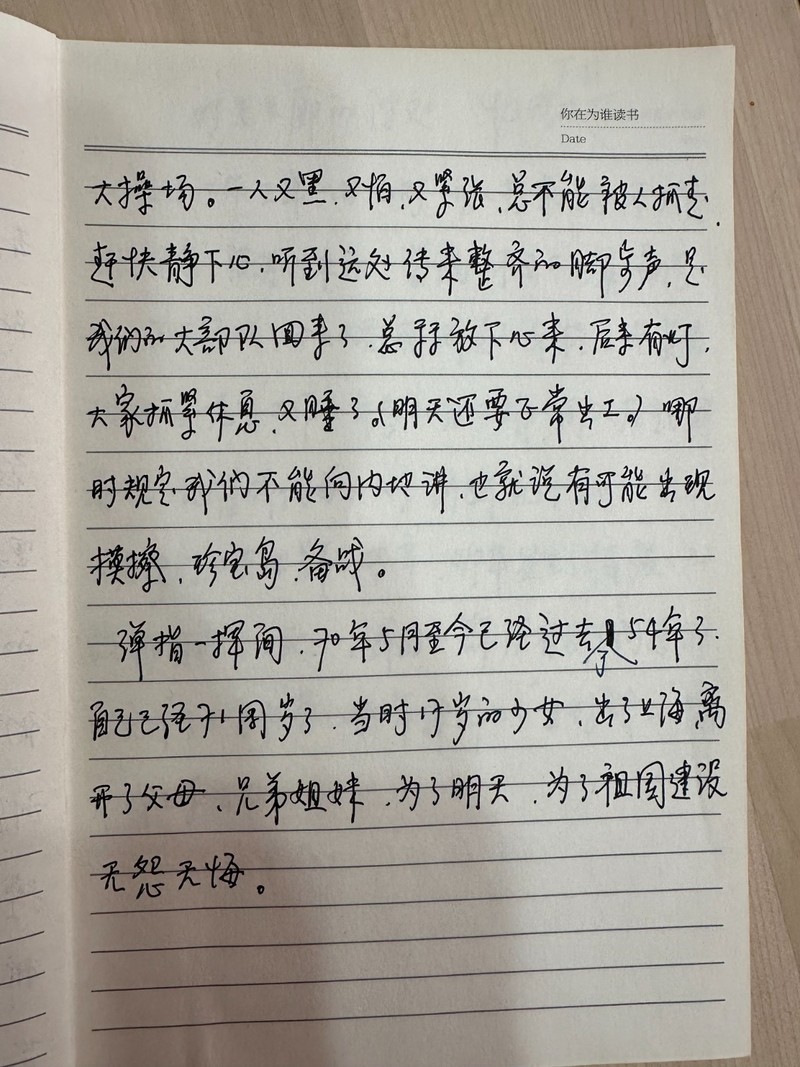 你在为谁读书
Date
大操场。一人又黑,又怕,又紧张,总不能被人抓走,
赶快静下心,听到远处传来整齐的脚步声,是
我们的大部队回来了,总算放下心来,后来有灯,
大家抓紧休息,又睡了。(明天还要正常出工。)哪
时规定我们不能向内地讲,也就说有可能出现
模擦,珍宝岛,备战。
弹指一挥间,70年5月至今已经过去54年了,
自己已经71周岁了,当时17岁的少女,出了上海离
开了父母、兄弟姐妹,为了明天,为了祖国建设
无怨无悔。